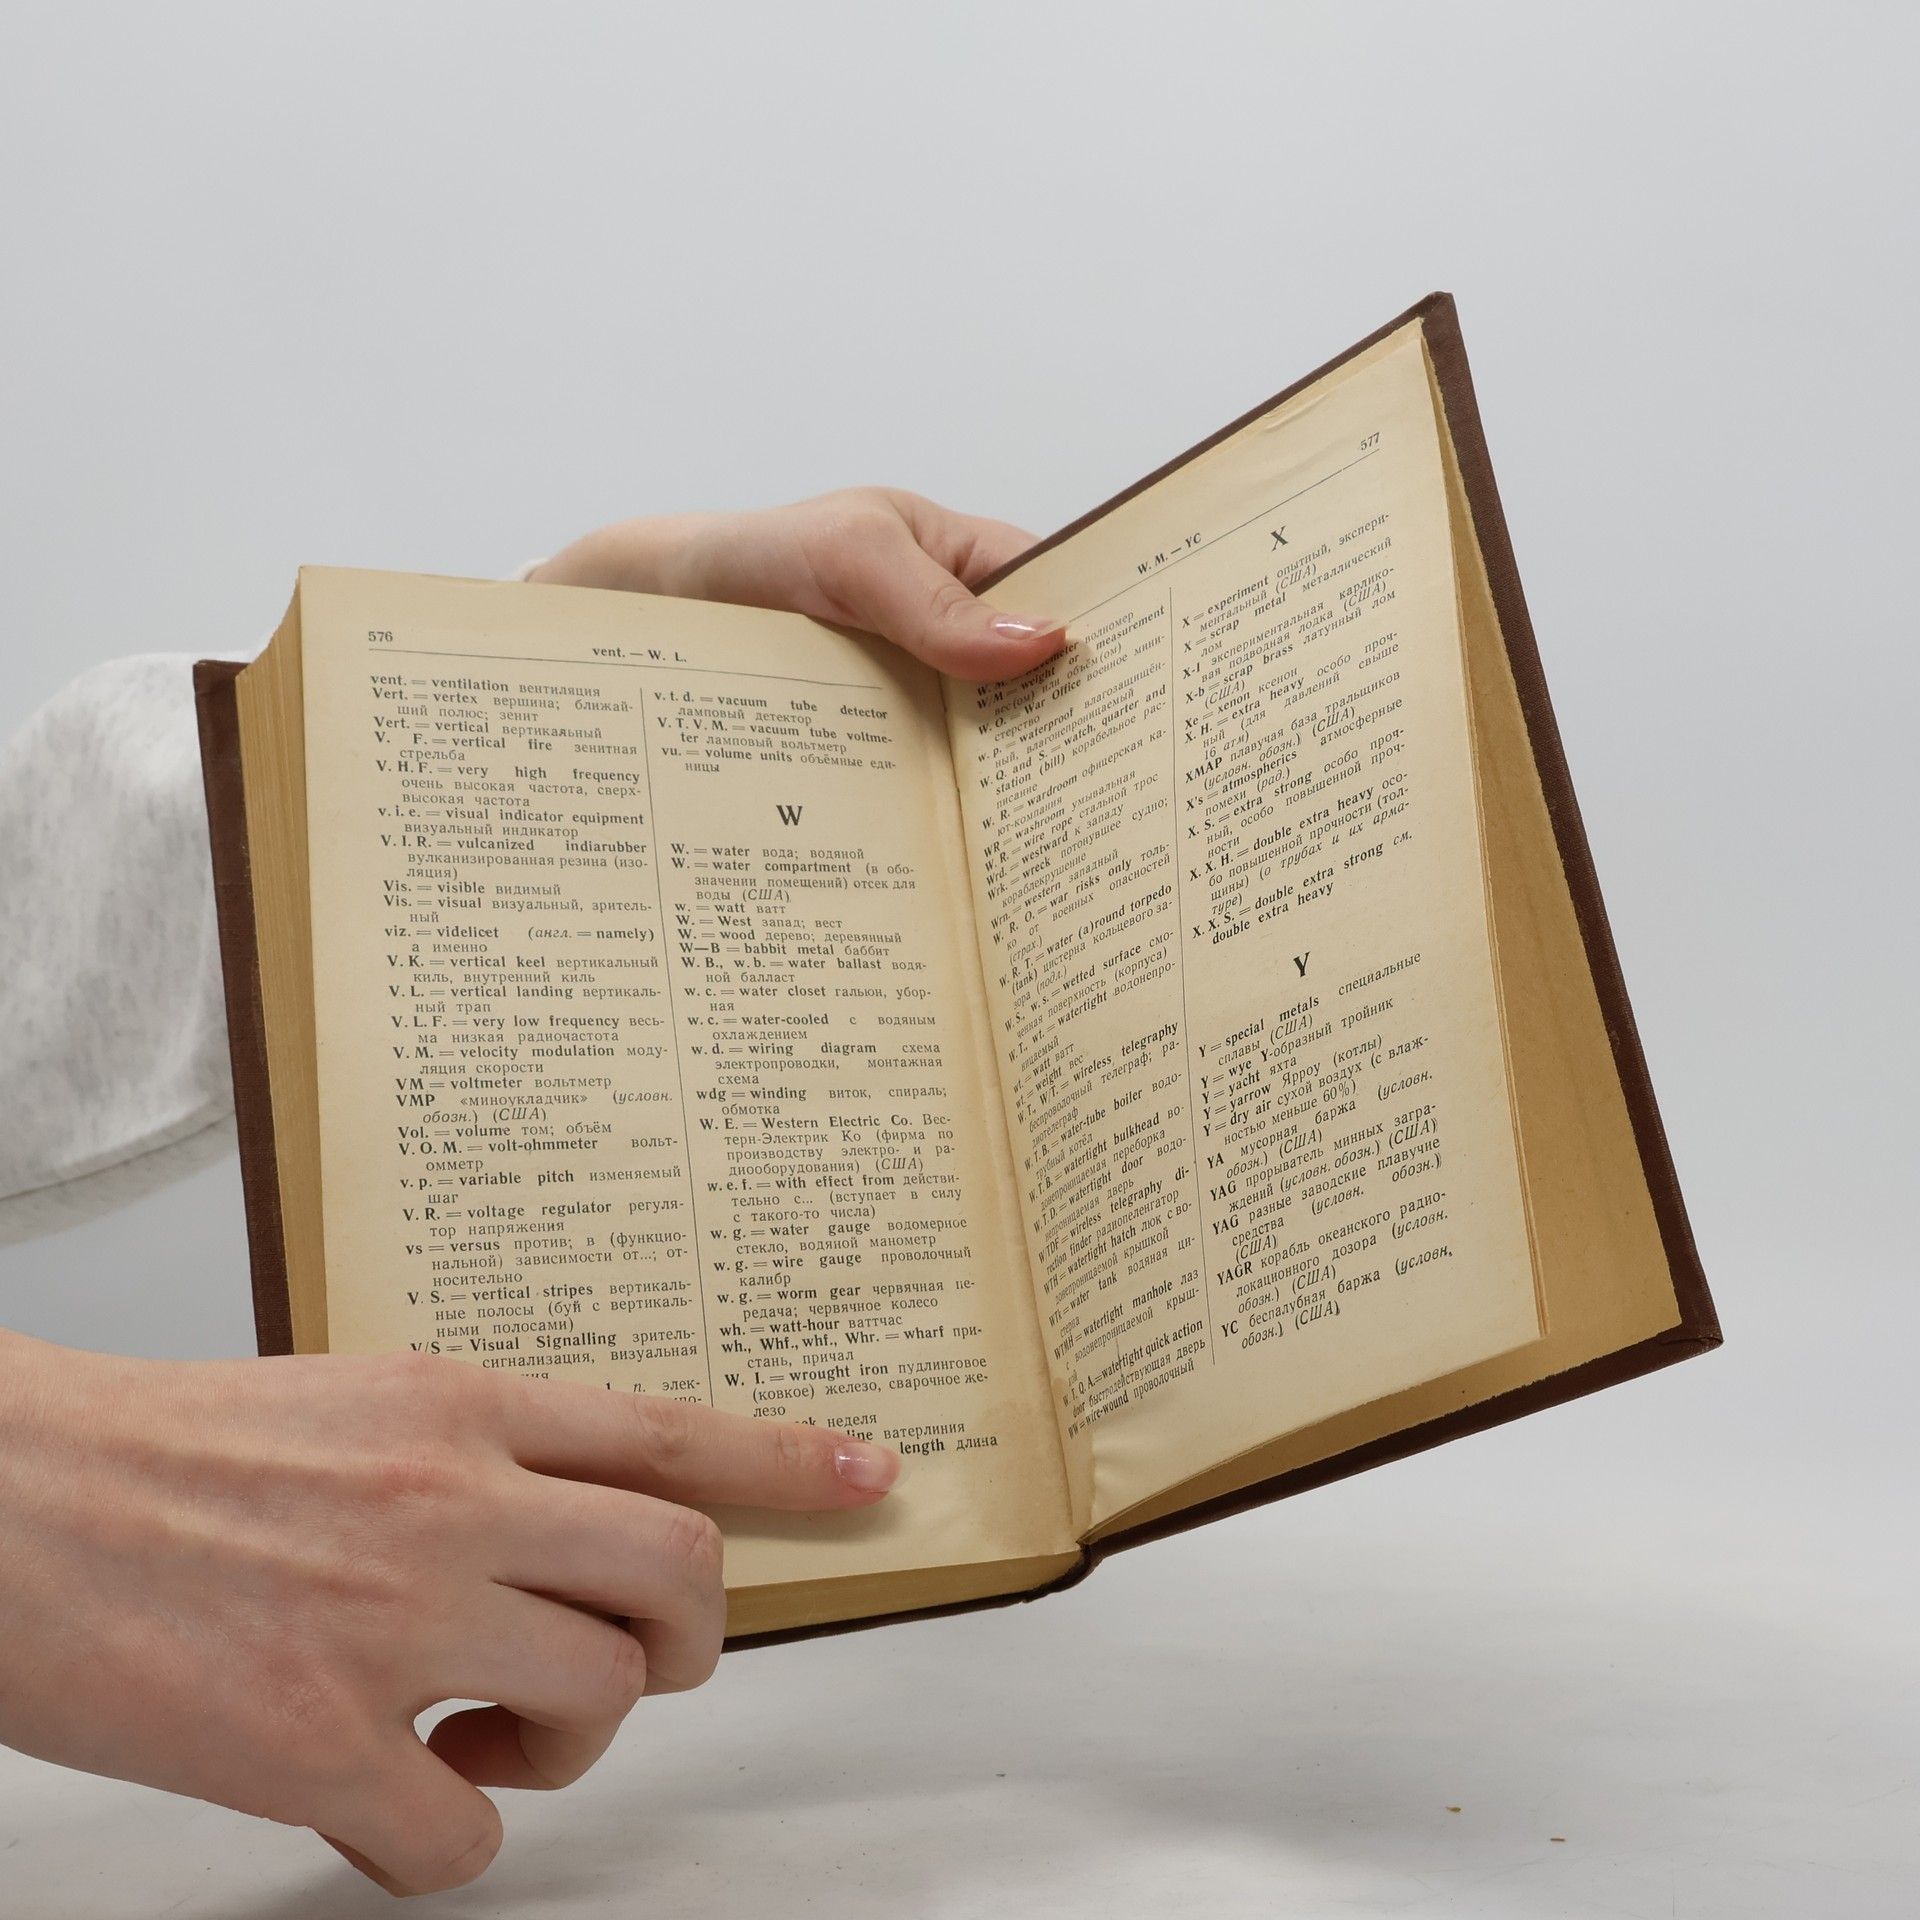 576
vent. — W. L.
vent. = ventilation вентиляция
Vert. = vertex вершина; ближай-
ший полюс; зенит
Vert. = vertical вертикальный
V. F. = vertical fire зенитная
стрельба
V. H. F. = very high frequency
очень высокая частота, сверх-
высокая частота
v. i. e. = visual indicator equipment
визуальный индикатор
V. I. R. = vulcanized indiarubber
вулканизированная резина (изо-
ляция)
Vis. = visible видимый
Vis. = visual визуальный, зритель-
ный
viz. = videlicet (англ. = namely)
а именно
V. K. = vertical keel вертикальный
киль, внутренний киль
V. L. = vertical landing вертикаль-
ный трап
V. L. F. = very low frequency весь-
ма низкая радиочастота
V. M. = velocity modulation моду-
ляция скорости
VM = voltmeter вольтметр
VMP «миноукладчик» (условн.
обозн.) (США)
Vol. = volume том; объём
V. O. M. = volt-ohmmeter вольт-
омметр
v. p. = variable pitch изменяемый
шаг
V. R. = voltage regulator регуля-
тор напряжения
vs = versus против; в (функцио-
нальной) зависимости от...; от-
носительно
V. S. = vertical stripes вертикаль-
ные полосы (буй с вертикаль-
ными полосами)
V/S = Visual Signalling зритель-
сигнализация, визуальная
п. элек-
v. t. d. = vacuum tube detector
ламповый детектор
V. T. V. M. = vacuum tube voltme-
ter ламповый вольтметр
vu. = volume units объёмные еди-
ницы
W
W. = water вода; водяной
W. = water compartment (в обо-
значении помещений) отсек для
воды (США)
w. = watt ватт
W. = West запад; вест
W. = wood дерево; деревянный
W—B = babbit metal баббит
W. B., w. b. = water ballast водя-
ной балласт
w. c. = water closet гальюн, убор-
ная
w. c. = water-cooled с водяным
охлаждением
w. d. = wiring diagram схема
электропроводки, монтажная
схема
wdg = winding виток, спираль;
обмотка
W. E. = Western Electric Co. Вес-
терн-Электрик Ко (фирма по
производству электро- и ра-
диооборудования) (США)
w. e. f. = with effect from действи-
тельно с... (вступает в силу
с такого-то числа)
w. g. = water gauge водомерное
стекло, водяной манометр
w. g. = wire gauge проволочный
калибр
w. g. = worm gear червячная пе-
редача; червячное колесо
wh. = watt-hour ваттчас
wh., Whf., whf., Whr. = wharf при-
стань, причал
W. I. = wrought iron пудлинговое
(ковкое) железо, сварочное же-
лезо
неделя
line ватерлиния
length длина
577
W. M. — YC
волномер
W/M = weight or measurement
вес(ом) или объём(ом)
W. O. = War Office военное мини-
стерство
w. p. = waterproof влагозащищён-
ный, влагонепроницаемый
W. Q. and S. = watch, quarter and
station (bill) корабельное рас-
писание
W. R. = wardroom офицерская ка-
ют-компания
WR = washroom умывальная
W. R. = wire rope стальной трос
Wrd. = westward к западу
Wrk. = wreck потонувшее судно;
кораблекрушение
Wrn. = western западный
W. R. O. = war risks only толь-
ко от военных опасностей
(страх.)
W. R. T. = water (a)round torpedo
(tank) цистерна кольцевого за-
зора (подл.)
W. S., w. s. = wetted surface смо-
ченная поверхность (корпуса)
W. T., wt. = watertight водонепро-
ницаемый
wt. = watt ватт
wt. = weight вес
W. T., W/T. = wireless telegraphy
беспроволочный телеграф; ра-
диотелеграф
W. T. B. = water-tube boiler водо-
трубный котёл
W. T. B. = watertight bulkhead во-
донепроницаемая переборка
W. T. D. = watertight door водо-
непроницаемая дверь
WTDF = wireless telegraphy di-
rection finder радиопеленгатор
WTH = watertight hatch люк с во-
донепроницаемой крышкой
WTk = water tank водяная ци-
стерна
WTMH = watertight manhole лаз
с водонепроницаемой крыш-
кой
W. T. Q. A. = watertight quick action
door быстродействующая дверь
WW = wire-wound проволочный
X
X = experiment опытный, экспери-
ментальный (США)
X = scrap metal металлический
лом
X-1 экспериментальная карлико-
вая подводная лодка (США)
X-b = scrap brass латунный лом
(США)
Xe = xenon ксенон
X. H. = extra heavy особо проч-
ный (для давлений свыше
16 атм)
XMAP плавучая база тральщиков
(условн. обозн.) (США)
X's = atmospherics атмосферные
помехи (рад.)
X. S. = extra strong особо проч-
ный, особо повышенной проч-
ности
X. X. H. = double extra heavy осо-
бо повышенной прочности (тол-
щины) (о трубах и их арма-
туре)
X. X. S. = double extra strong см.
double extra heavy
Y
Y = special metals специальные
сплавы (США)
Y = wye Y-образный тройник
Y = yacht яхта
Y = yarrow Ярроу (котлы)
Y = dry air сухой воздух (с влаж-
ностью меньше 60%)
YA мусорная баржа (условн.
обозн.) (США)
YAG прорыватель минных загра-
ждений (условн. обозн.) (США)
YAG разные заводские плавучие
средства (условн. обозн.)
(США)
YAGR корабль океанского радио-
локационного дозора (условн.
обозн.) (США)
YC беспалубная баржа (условн.
обозн.) (США)